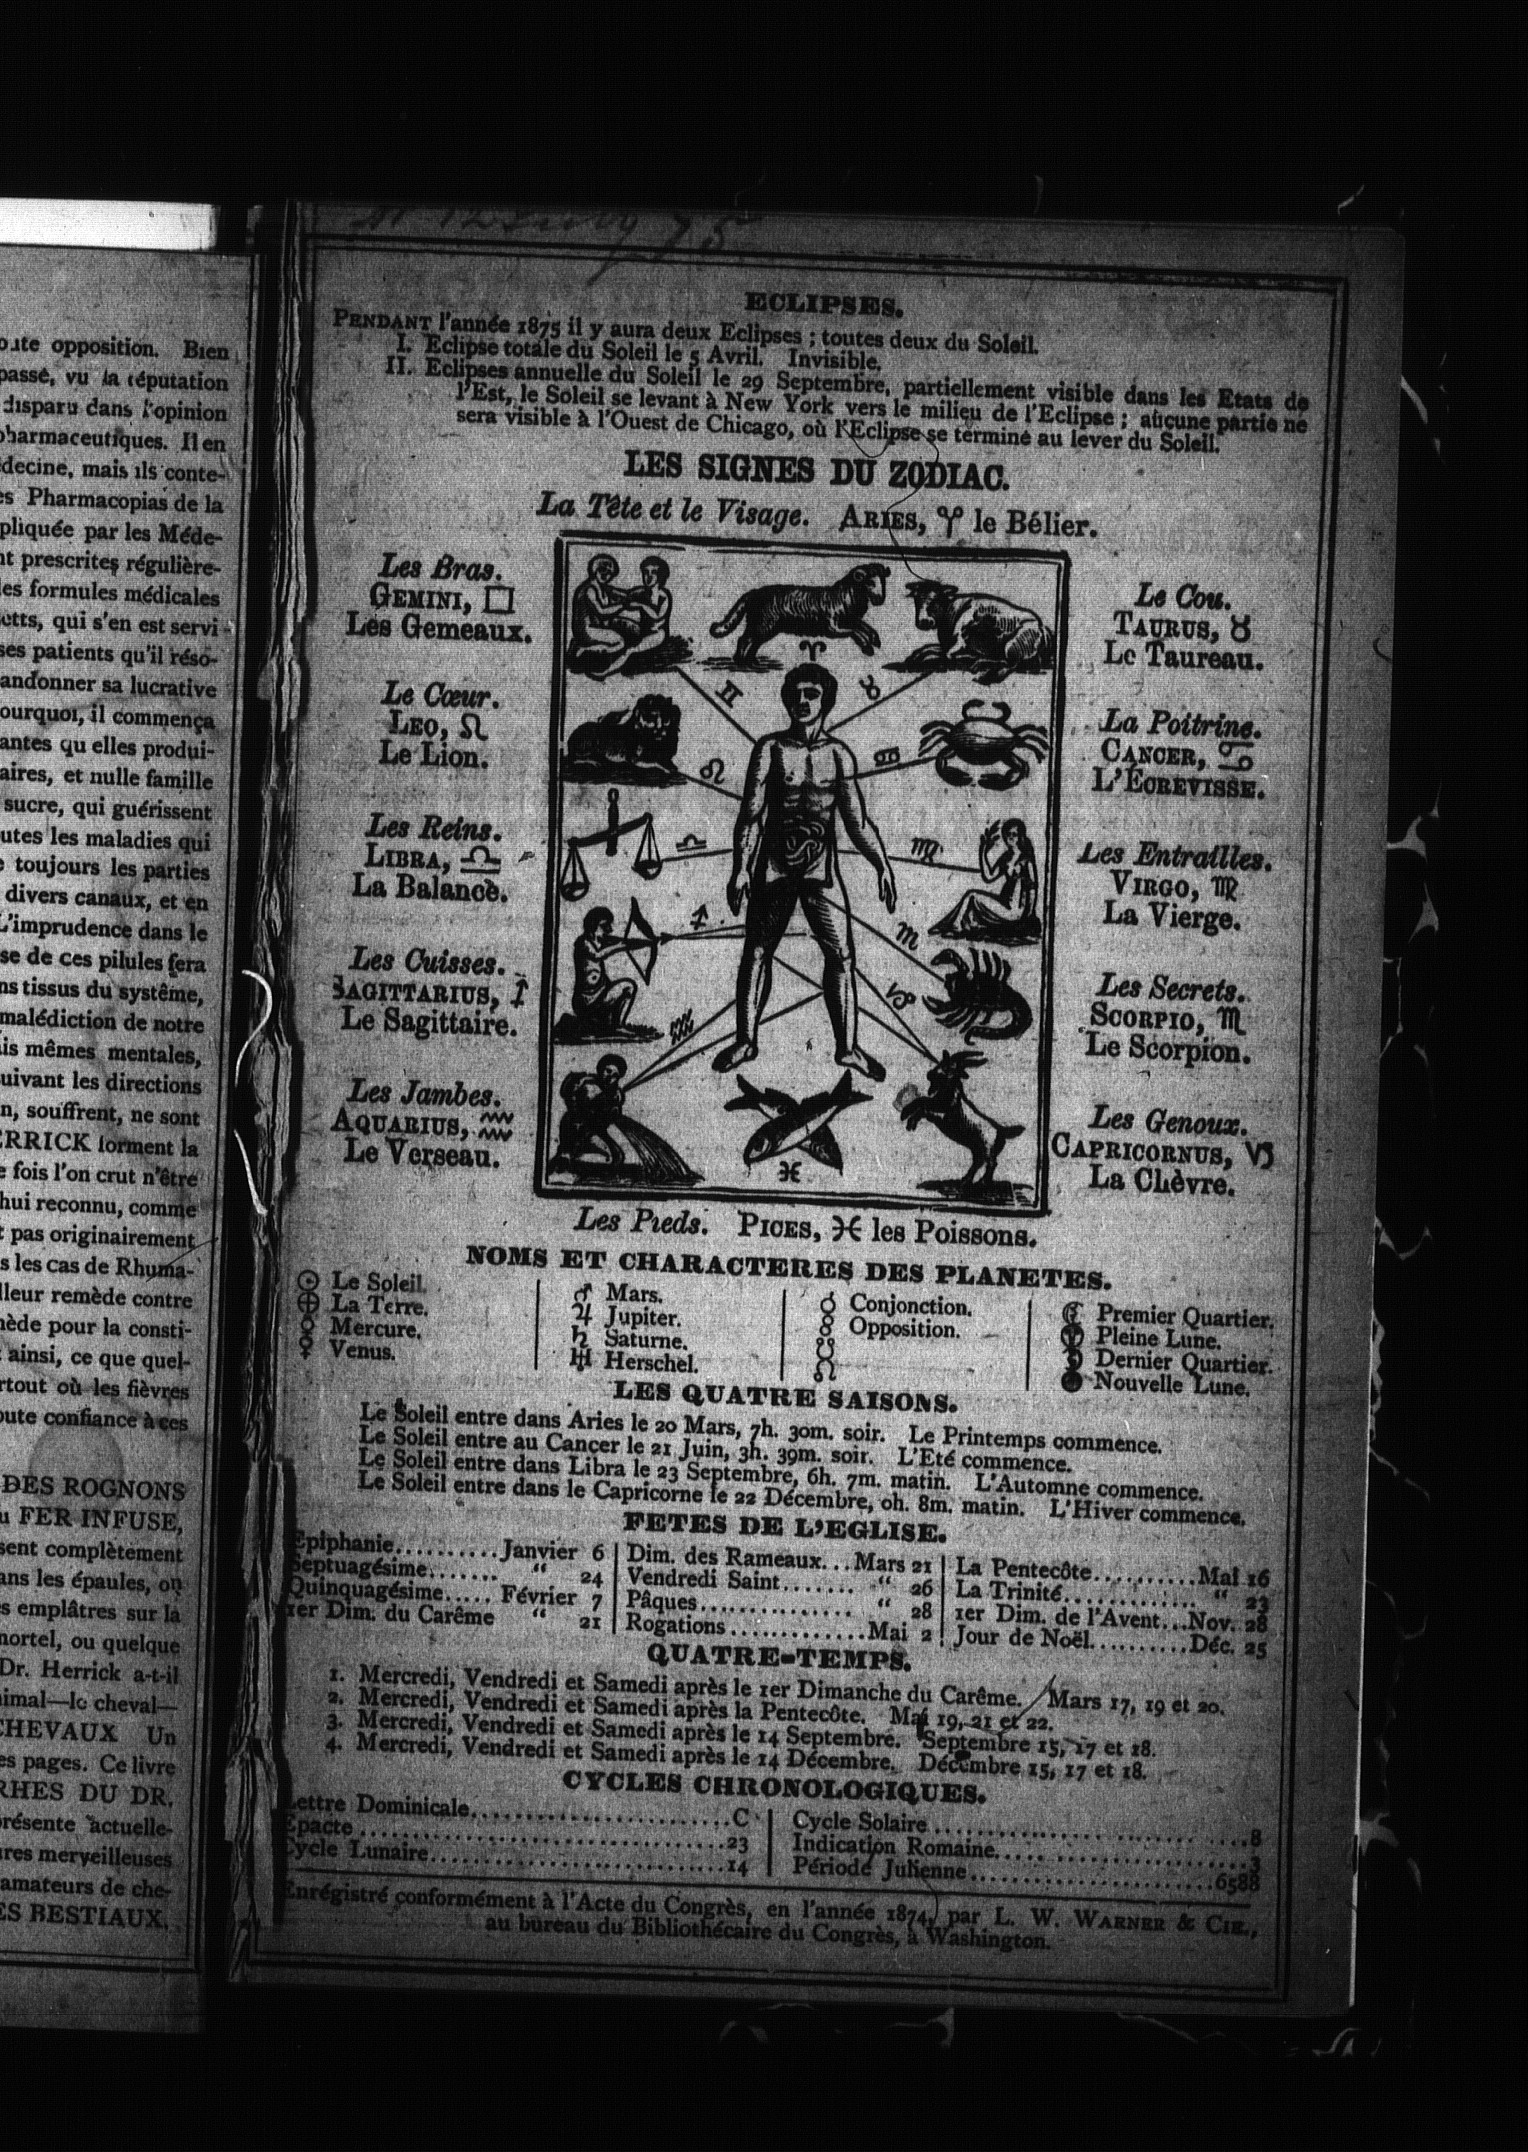 oute opposition. Bien
passé, vu la réputation
disparu dans l'opinion
pharmaceutiques. Il en
decine, mais ils conte-
es Pharmacopias de la
pliquée par les Méde-
nt prescrites régulière-
les formules médicales
etts, qui s'en est servi
ses patients qu'il réso-
andonner sa lucrative
ourquoi, il commença
antes qu elles produi-
aires, et nulle famille
sucre, qui guérissent
outes les maladies qui
e toujours les parties
divers canaux, et en
L'imprudence dans le
se de ces pilules fera
ns tissus du systême,
malédiction de notre
is mêmes mentales,
uivant les directions
n, souffrent, ne sont
ERRICK forment la
e fois l'on crut n'être
hui reconnu, comme
t pas originairement
s les cas de Rhuma-
lleur remède contre
nède pour la consti-
ainsi, ce que quel-
rtout où les fièvres
oute confiance à ces
DES ROGNONS
u FER INFUSE,
sent complètement
ans les épaules, on
s emplâtres sur la
mortel, ou quelque
Dr. Herrick a-t-il
nimal—le cheval—
CHEVAUX Un
es pages. Ce livre
RHES DU DR.
présente actuelle-
ures merveilleuses
amateurs de che-
ES BESTIAUX.
ECLIPSES.
PENDANT l'année 1875 il y aura deux Eclipses ; toutes deux du Soleil.
I. Eclipse totale du Soleil le 5 Avril. Invisible.
II. Eclipses annuelle du Soleil le 29 Septembre, partiellement visible dans les Etats de
l'Est, le Soleil se levant à New York vers le milieu de l'Eclipse ; aucune partie ne
sera visible à l'Ouest de Chicago, où l'Eclipse se termine au lever du Soleil.
LES SIGNES DU ZODIAC.
La Tête et le Visage. ARIES, ♈ le Bélier.
Les Bras.
GEMINI, □
Les Gemeaux.
Le Cœur.
LEO, ♌
Le Lion.
Les Reins.
LIBRA, ♎
La Balance.
Les Cuisses.
SAGITTARIUS, ♐
Le Sagittaire.
Les Jambes.
AQUARIUS, ♒
Le Verseau.
♈
♊ ♉
♌ ♋
♎ ♍
♐ ♏
♒ ♑
♓
Le Cou.
TAURUS, ♉
Le Taureau.
La Poitrine.
CANCER, ♋
L'ÉCREVISSE.
Les Entrailles.
VIRGO, ♍
La Vierge.
Les Secrets.
SCORPIO, ♏
Le Scorpion.
Les Genoux.
CAPRICORNUS, ♑
La Chèvre.
Les Pieds. PICES, ♓ les Poissons.
NOMS ET CHARACTERES DES PLANETES.
☉ Le Soleil.
⊕ La Terre.
☿ Mercure.
♀ Venus.
♂ Mars.
♃ Jupiter.
♄ Saturne.
♅ Herschel.
☌ Conjonction.
☍ Opposition.
☋
☊
Premier Quartier.
Pleine Lune.
Dernier Quartier.
Nouvelle Lune.
LES QUATRE SAISONS.
Le Soleil entre dans Aries le 20 Mars, 7h. 30m. soir. Le Printemps commence.
Le Soleil entre au Cancer le 21 Juin, 3h. 39m. soir. L'Eté commence.
Le Soleil entre dans Libra le 23 Septembre, 6h. 7m. matin. L'Automne commence.
Le Soleil entre dans le Capricorne le 22 Décembre, 0h. 8m. matin. L'Hiver commence.
FETES DE L'EGLISE.
Epiphanie..........Janvier 6
Septuagésime....... " 24
Quinquagésime..... Février 7
1er Dim. du Carême " 21
Dim. des Rameaux...Mars 21
Vendredi Saint........ " 26
Pâques............... " 28
Rogations.............Mai 2
La Pentecôte..........Mai 16
La Trinité............. " 23
1er Dim. de l'Avent...Nov. 28
Jour de Noël..........Déc. 25
QUATRE-TEMPS.
1. Mercredi, Vendredi et Samedi après le 1er Dimanche du Carême. Mars 17, 19 et 20.
2. Mercredi, Vendredi et Samedi après la Pentecôte. Mai 19, 21 et 22.
3. Mercredi, Vendredi et Samedi après le 14 Septembre. Septembre 15, 17 et 18.
4. Mercredi, Vendredi et Samedi après le 14 Décembre. Décembre 15, 17 et 18.
CYCLES CHRONOLOGIQUES.
Lettre Dominicale..........................C
Epacte....................................23
Cycle Lunaire.............................14
Cycle Solaire.............................8
Indication Romaine........................3
Période Julienne.......................6588
Enrégistré conformément à l'Acte du Congrès, en l'année 1874, par L. W. WARNER & CIE.,
au bureau du Bibliothécaire du Congrès, à Washington.